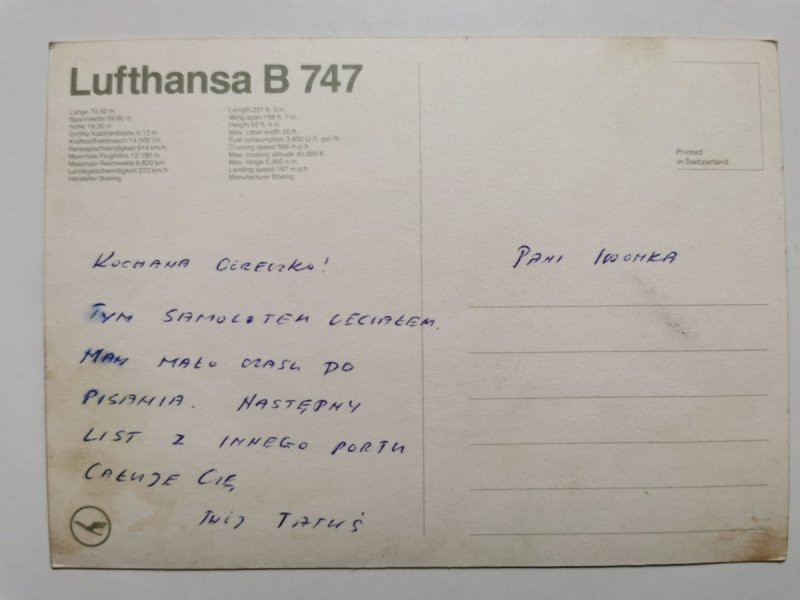 Lufthansa B 747
Länge 70,50 m
Spannweite 59,60 m
Höhe 19,30 m
Größte Kabinenbreite 6,13 m
Kraftstoffverbrauch 14 500 l/h
Reisegeschwindigkeit 914 km/h
Maximale Flughöhe 12 190 m
Maximale Reichweite 9 820 km
Landegeschwindigkeit 270 km/h
Hersteller Boeing
Length 231 ft. 3 in.
Wing span 195 ft. 7 in.
Height 63 ft. 4 in.
Max. cabin width 20 ft.
Fuel consumption 3,830 U.S. gal./h.
Cruising speed 568 m.p.h.
Max. cruising altitude 40,000 ft.
Max. range 5,300 n.m.
Landing speed 167 m.p.h.
Manufacturer Boeing
Printed
in Switzerland
KOCHANA CÓRECZKO!
TYM SAMOLOTEM LECIAŁEM.
MAM MAŁO CZASU DO
PISANIA. NASTĘPNY
LIST Z INNEGO PORTU
CAŁUJE CIĘ,
TWÓJ TATUŚ
PANI IWONKA